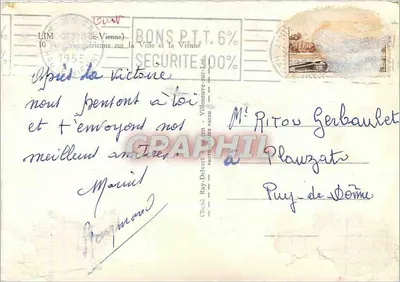 LIM (Hte-Vienne)
Vue aérienne sur la Ville et la Vienne
BONS P.T.T. 6%
SECURITE 100%
Après la victoire
nous pensons à toi
et t'envoyons nos
meilleurs amitiés.
Marius
Raymond
Cliché Ray-Delvert Villeneuve-sur-Lot
Mr Riton Gerbaulet
à Plauzat
Puy-de-Dôme
GRAPHIL